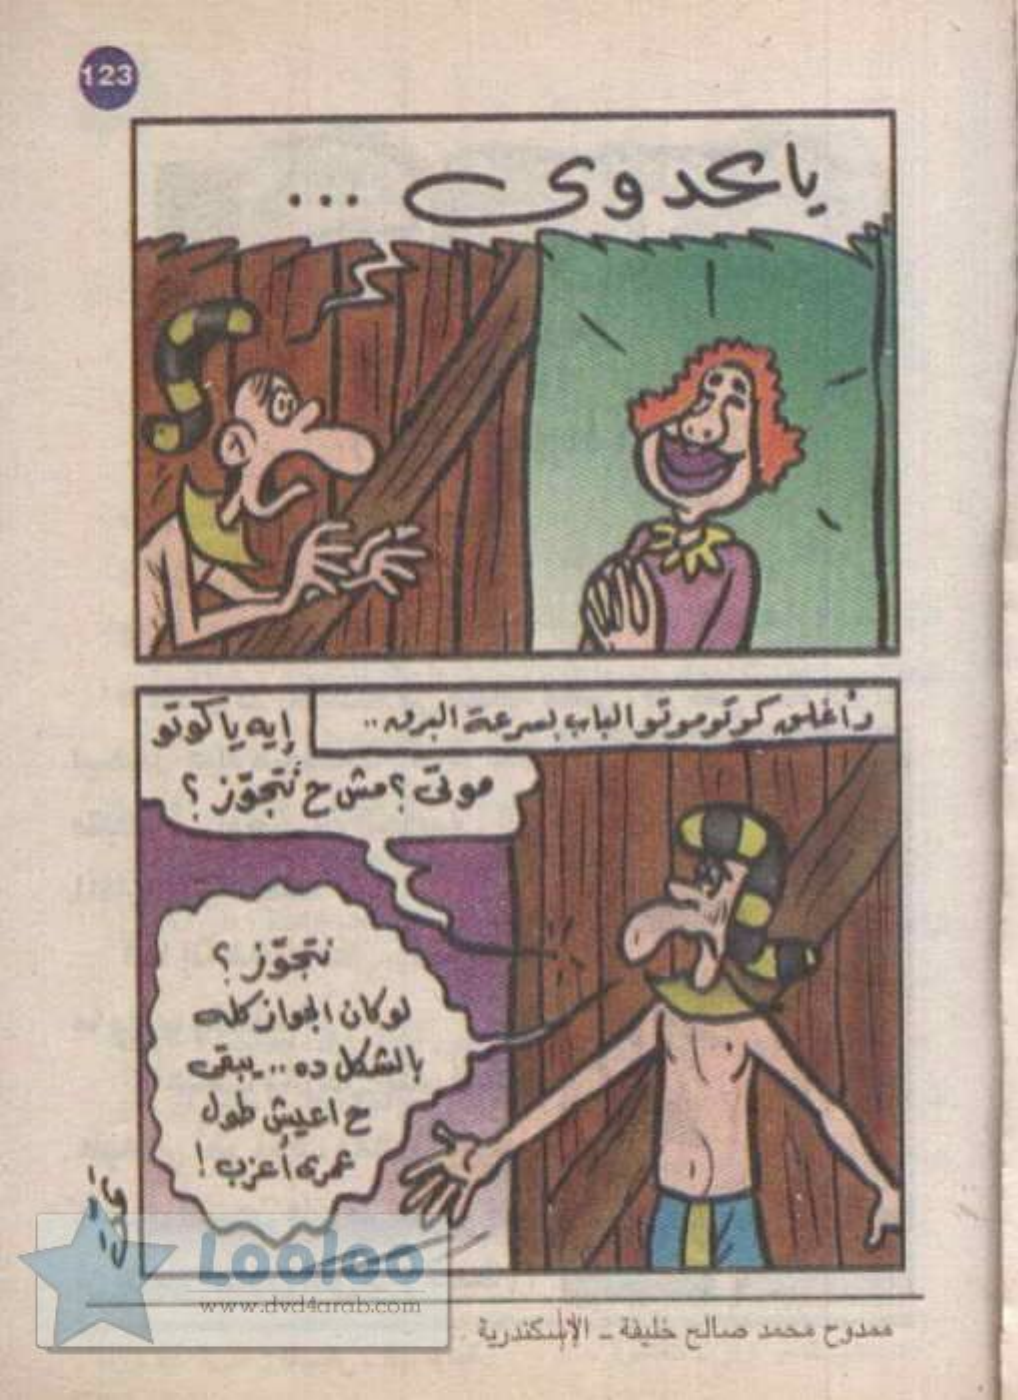 123
يا عدوى ...
وأغلق كوتوموتو الباب بسرعة البرق ..
إيه يا كوتو
موتى ؟ مش ح نتجوّز ؟
نتجوّز ؟
لو كان الجواز كله
بالشكل ده .. يبقى
ح اعيش طول
عمرى أعزب !
Looloo
www.dvd4arab.com
ممدوح محمد صالح خليفة - الإسكندرية